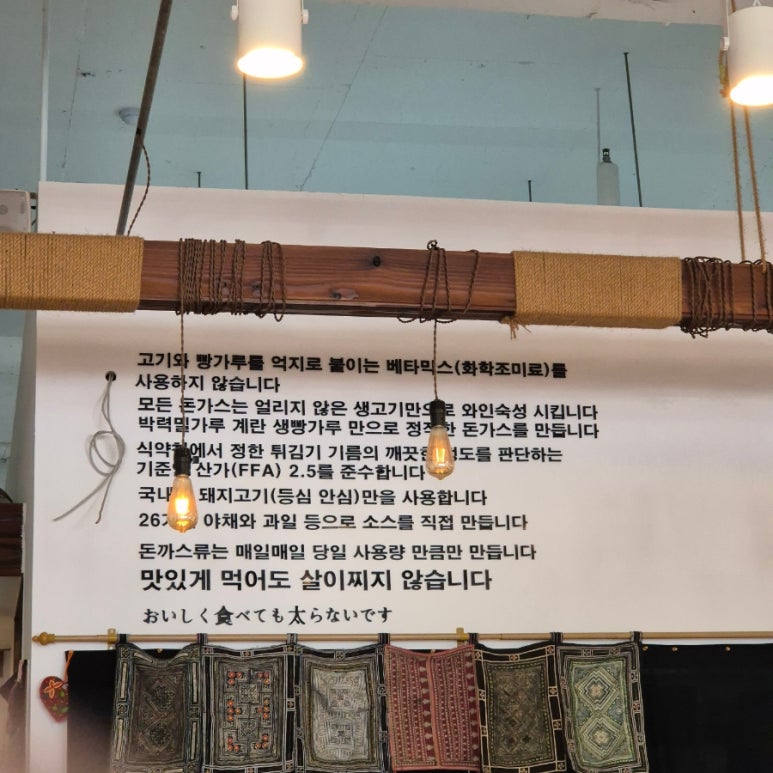 고기와 빵가루를 억지로 붙이는 베타믹스(화학조미료)를
사용하지 않습니다
모든 돈가스는 얼리지 않은 생고기만으로 와인숙성 시킵니다
박력밀가루 계란 생빵가루 만으로 정직한 돈가스를 만듭니다
식약처에서 정한 튀김기 기름의 깨끗한 정도를 판단하는
기준 산가(FFA) 2.5를 준수합니다
국내산 돼지고기(등심 안심)만을 사용합니다
야채와 과일 등으로 소스를 직접 만듭니다
돈까스류는 매일매일 당일 사용량 만큼만 만듭니다
맛있게 먹어도 살이찌지 않습니다
おいしく食べても太らないです